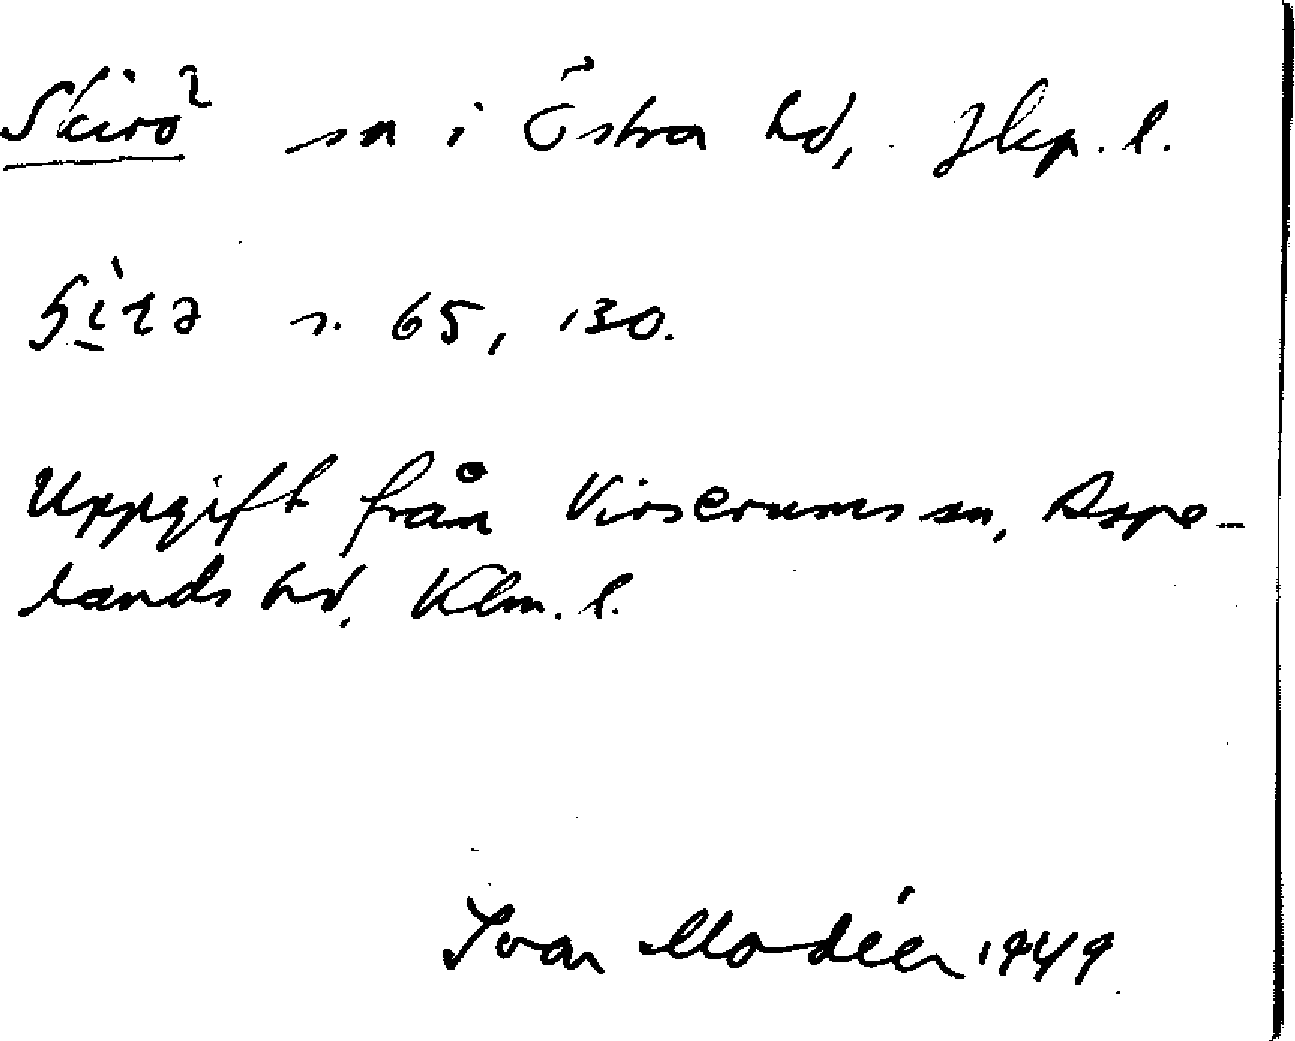 Skirö² sn i Östra hd, Jkp. l.
s. 65, 130.
Uppgift från Virserums sn, Aspe-
lands hd. Klm. l.
Ivar Modéer 1949